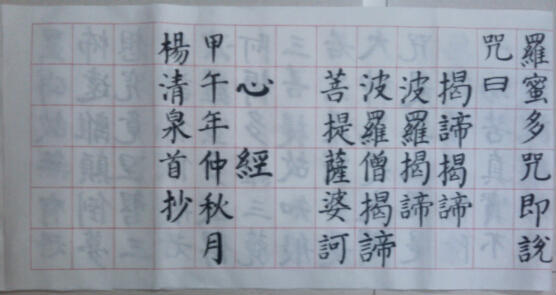 羅蜜多咒即說
咒曰
揭諦揭諦
波羅揭諦
波羅僧揭諦
菩提薩婆訶
心經
甲午年仲秋月
楊清泉首抄